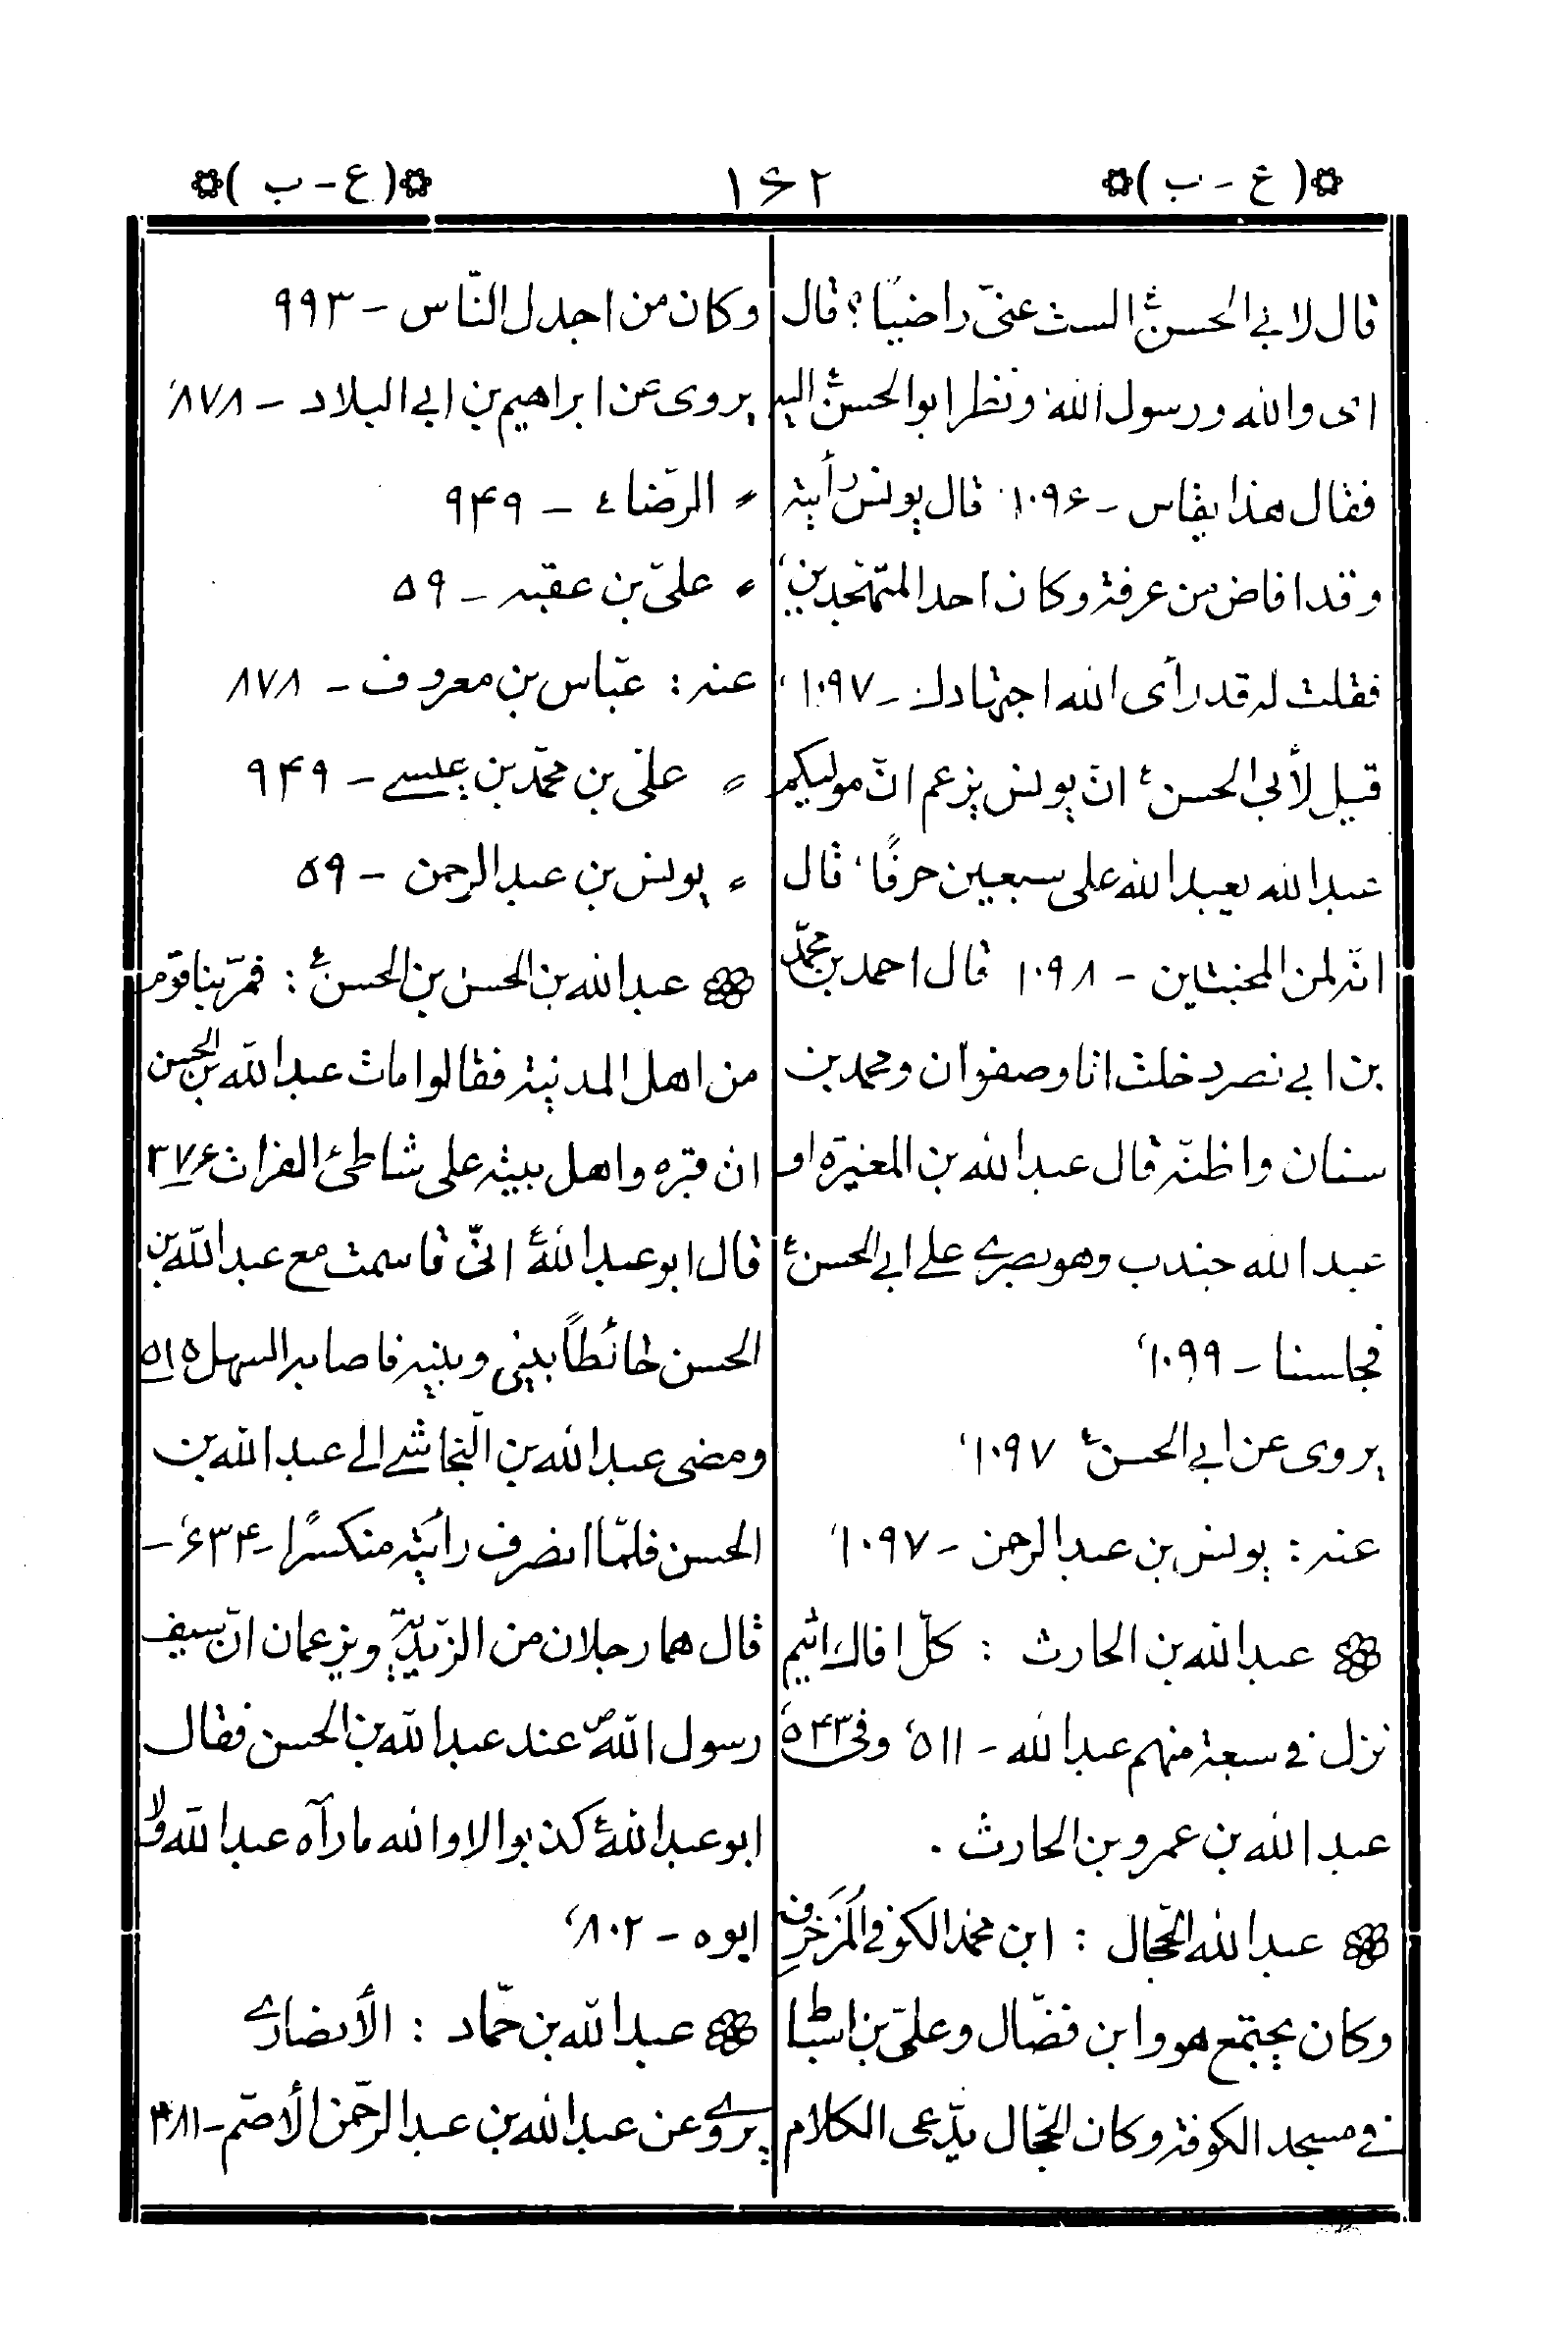 (ع - ب) ۱۶۲ (ع - ب)
قال لابی الحسن ع الست عنّی راضیًا؟ قال
ای والله ورسول الله ونظر ابوالحسن ع الیه
فقال هذا یقاس - ۱۰۹۶، قال یونس رأیته
وقد افاض من عرفة وکان احد المتهجدین،
فقلت له قد رأی الله اجتهادك - ۱۰۹۷،
قیل لأبی الحسن ع انّ یونس یزعم انّ مولیکم
عبدالله یعبد الله علی سبعین حرفًا، قال
انّه لمن المخبتین - ۱۰۹۸ قال احمد بن محمّد
بن ابی نصر دخلت انا وصفوان ومحمد بن
سنان واظنّه قال عبدالله بن المغیرة او
عبدالله جندب وهو بصری علی ابی الحسن ع
فجلسنا - ۱۰۹۹،
یروی عن ابی الحسن ع ۱۰۹۷،
عنه : یونس بن عبدالرحمن - ۱۰۹۷،
عبدالله بن الحارث : کلّ افاك اثیم
نزل فی سبعة منهم عبدالله - ۵۱۱، وفی ۵۴۳،
عبدالله بن عمرو بن الحارث .
عبدالله الحجّال : ابن محمّد الکوفی المُزَخرِف
وکان یجتمع هو وابن فضّال وعلیّ بن اسباط
فی مسجد الکوفة وکان الحجّال یدّعی الکلام
وکان من اجدل النّاس - ۹۹۳
یروی عن ابراهیم بن ابی البلاد - ۸۷۸،
〃 الرّضا ع - ۹۴۹
〃 علیّ بن عقبه - ۵۹
عنه : عبّاس بن معروف - ۸۷۸
〃 علیّ بن محمّد بن عیسی - ۹۴۹
〃 یونس بن عبدالرحمن - ۵۹
عبدالله بن الحسن بن الحسن ع : فمرّ بنا قوم
من اهل المدینة فقالوا مات عبدالله بن الحسن
ان قبره واهل بیته علی شاطئ الفرات ۳۷۶
قال ابوعبدالله ع انّی قاسمت مع عبدالله بن
الحسن حائطًا بینی وبینه فاصابه السهل ۵۱۵
ومضی عبدالله بن النّجاشی الی عبدالله بن
الحسن فلمّا انصرف رأیته منکسرًا - ۶۳۴، -
قال هما رجلان من الزّیدیّة ویزعمان انّ سیف
رسول الله ص عند عبدالله بن الحسن فقال
ابوعبدالله ع کذبوا لا والله ما رآه عبدالله ولا
ابوه - ۸۰۲،
عبدالله بن حمّاد : الأنصاری
یروی عن عبدالله بن عبدالرحمن الأصّم - ۳۸۱